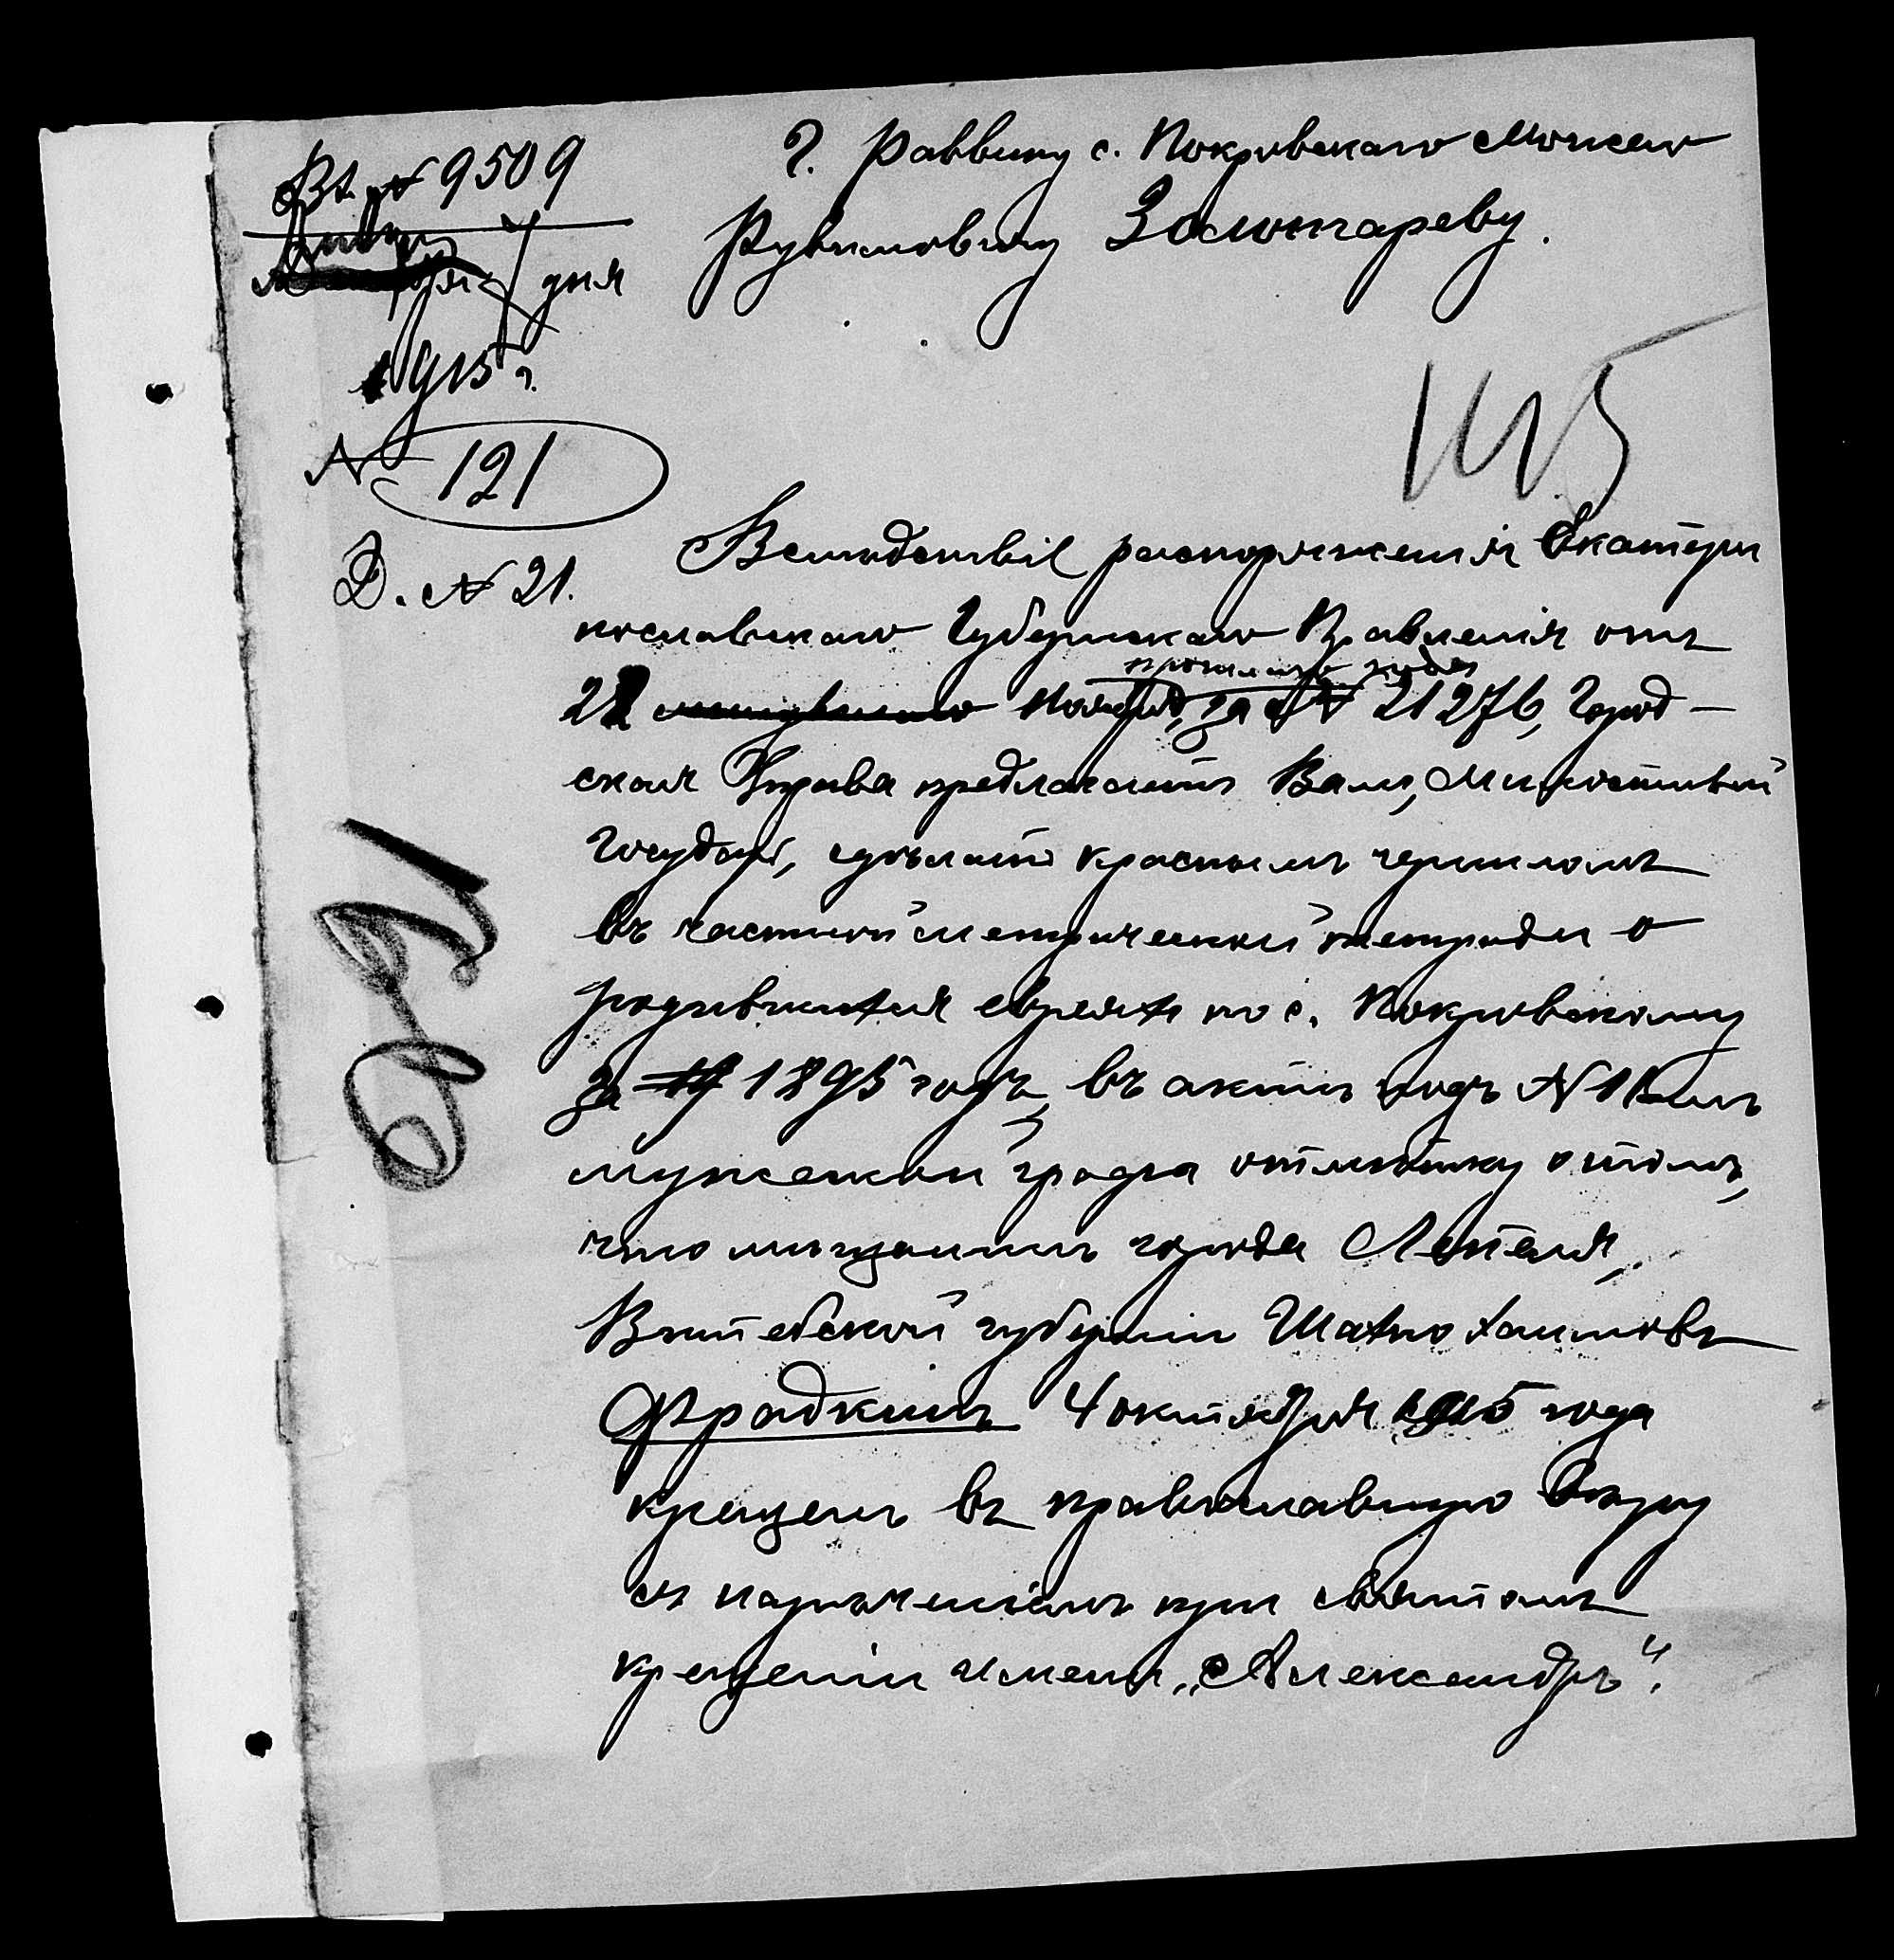 Вх. № 9509
дня
1915 г.
№ 121
Д. № 21.
Г. Раввину с. Покровскаго Моисею
Рувимовичу Золотареву.
Вслѣдствіе распоряженія Екатери
нославскаго Губернскаго Правленія отъ
прошлаго года
22 Ноября, за № 21276, Город-
ская Управа предлагаетъ Вамъ, Милостивый
Государь, сдѣлать красными чернилами
въ частной метрической тетради о
родившихся евреяхъ по с. Покровскому
за 1895 годъ, въ актѣ подъ №
мужской графы отмѣтку о томъ,
что мѣщанинъ города Лепеля,
Витебской губерніи Шахно Хаимовъ
Фрадкинъ 4 октября 1915 года
крещенъ въ православную вѣру
съ нареченіемъ при святомъ
крещеніи имени „Александръ“.